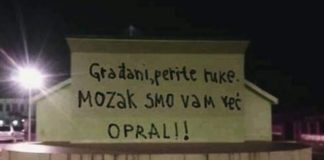 Građani, perite ruke.
MOZAK SMO VAM već
OPRALI!